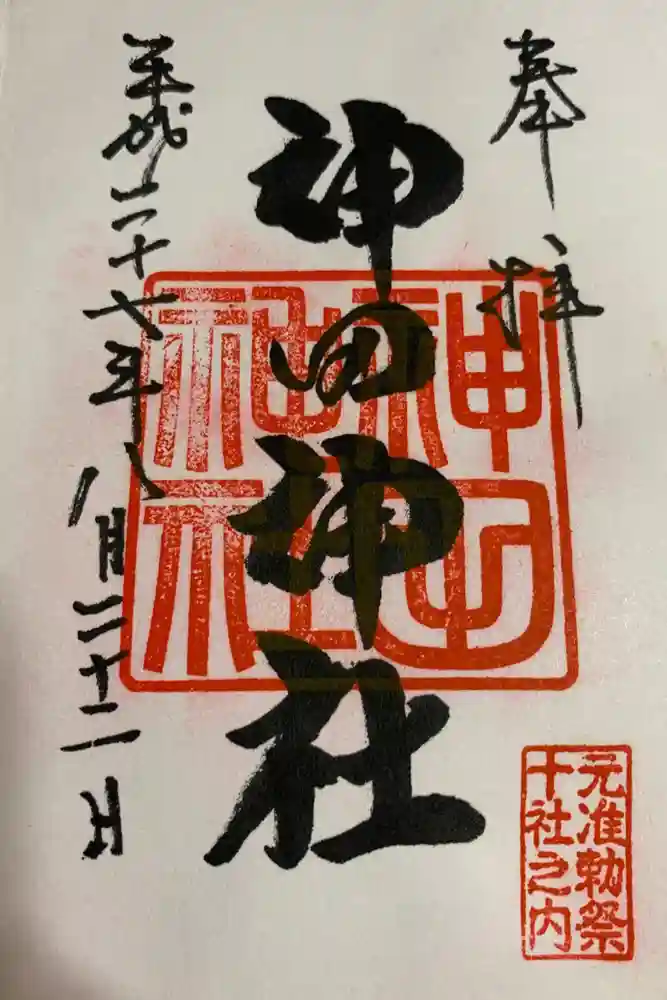 奉拝
神田神社
平成二十七年八月二十二日
元准勅祭
十社之内